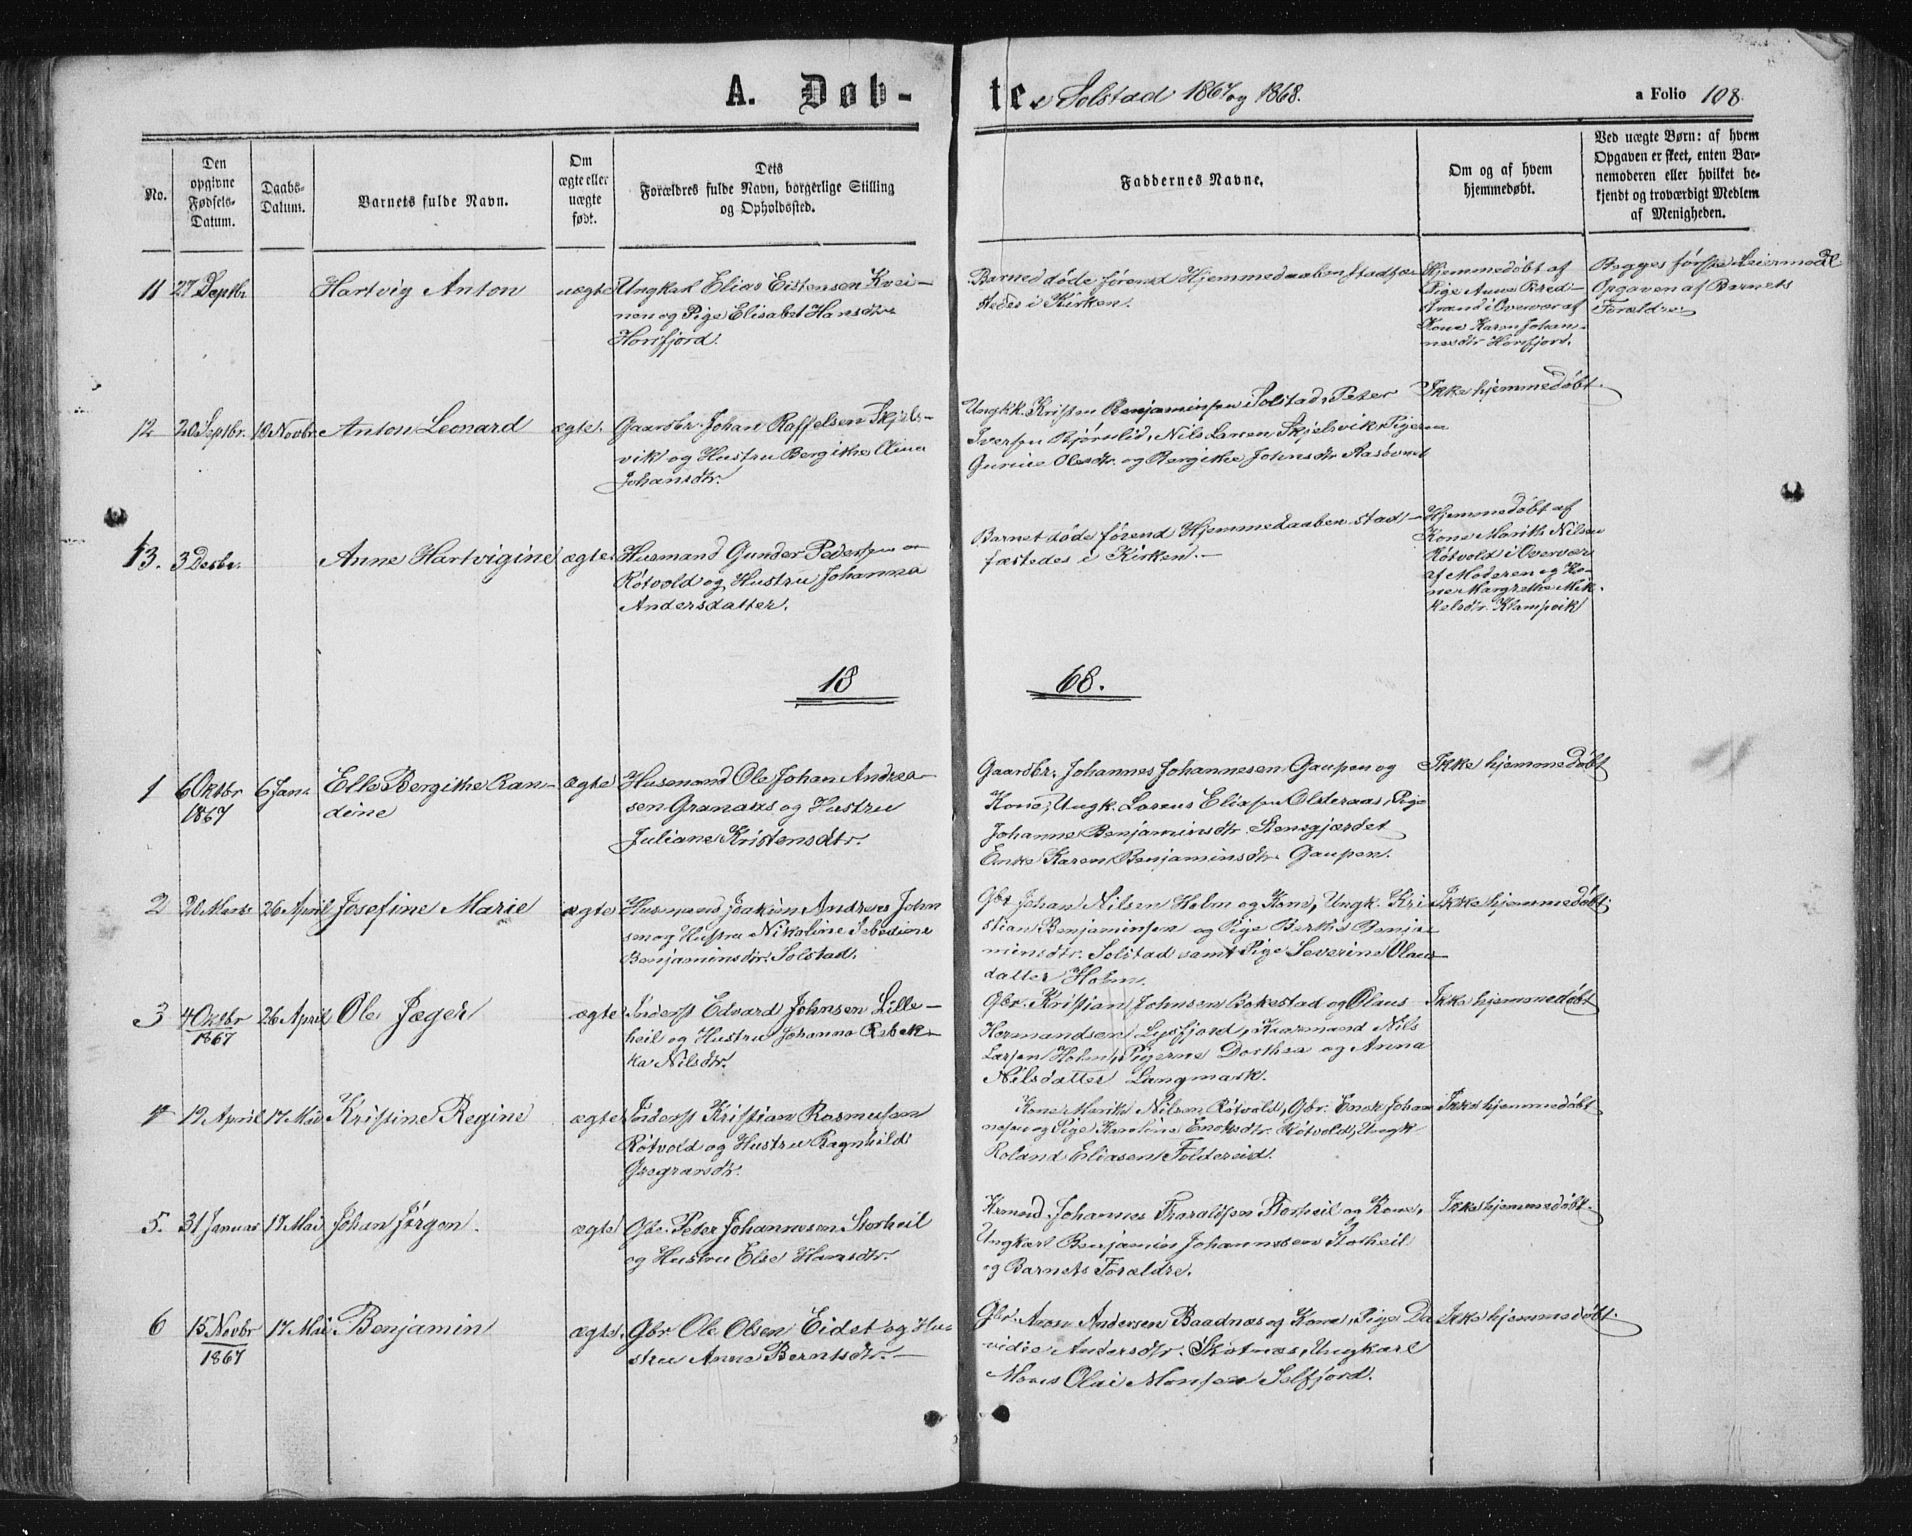 A. Døb-
te. i Solstad 1867 og 1868.
a Folio 108.
No.
Den
opgivne
Fødsels-
Datum.
Daabs-
Datum.
Barnets fulde Navn.
Om
ægte eller
uægte
født.
Dets
Forældres fulde Navn, borgerlige Stilling
og Opholdssted.
Faddernes Navne.
Om og af hvem
hjemmedøbt.
Ved uægte Børn: af hvem
Opgaven er skeet, enten Bar-
nemoderen eller hvilket be-
kjendt og troværdigt Medlem
af Menigheden.
11
27 Septbr
Hartvig Anton
uægte
Ungkarl Elias Eistensen Kvei-
nen og Pige Elisabet Hansdtr
Horsfjord.
Barned døde førend Hjemmedaaben stadfæ-
stedes i Kirken.
Hjemmedøbt af
Pige Anne
strand i Overvær af
Kone Karen Johan-
nesdtr Horsfjord.
Begges første Leiermaal
Opgaven af Barnets
Forældre.
12
20 Septbr.
10 Novbr.
Anton Leonard
ægte.
Gaardbr. Johan Raffelsen Skjels-
vik og Hustru Bergithe Olina
Johansdtr.
Ungkk. Kristen Benjaminsen Solstad, Peter
Iversen Bjørnlid, Nils Larsen Skjelsvik, Pigerne
Gurine Olesdtr. og Bergithe Johnsdtr
Ikke hjemmedøbt.
13.
3 Decbr.
Anne Hartvigine
ægte
Husmand Gunder Pedersen
Røtvold og Hustru Johanna
Andersdatter.
Barnet døde førend Hjemmedaaben stad-
fæstedes i Kirken.-
Hjemmedøbt af
Kone Marith Nilsen
Røtvold i Overvær
af Moderen og Ko-
ne Margrethe Mik-
kelsdtr. Klampvik
18
68.
1
6 Oktbr
1867
6 Jan.
Elle Bergithe Ran-
dine
ægte
Husmand Ole Johan Andrea-
sen Granaas og Hustru
Juliane Kristensdtr.
Gaardbr. Johannes Johannesen Gaupen og
Kone, Ungk. Lorens Eliasen Olsteraas, Pige
Johanne Benjaminsdtr. Stensgjærdet
Enke Karen Benjaminsdtr. Gaupen.
Ikke hjemmedøbt
2
20 Marts
26 April
Josefine Marie
ægte
Husmand Joakim Andreas John
sen og Hustru Nikoline
Benjaminsdtr. Solstad.
Gbr Johan Nilsen Holm og Kone, Ungk. Kri-
stian Benjaminsen og Pige Benja
minsdtr. Solstad samt Pige Severine Olaus-
datter Holm.
Ikke hjemmedøbt.
3
4 Oktbr
1867
26 April
Ole Jæger
ægte
Inderst Edvard Johnsen Lille-
heil og Hustru Johanna Rebek-
ka Nilsdtr.
Gbr. Kristian Johnsen Bakestad og Olaus
Hermandsen Lysfjord, Kaarmand Nils
Larsen Holm, Pigerne Dorthea og Anna
Nilsdatter Langmark.
Ikke hjemmedøbt
4
19 April
17 Mai
Kristine Regine
ægte
Inderst Kristian Rasmusen
Røtvold og Hustru Ragnhild
Gregersdtr.
Kone Marith Nilsen Røtvold, Gbr. Enok Johan
nesen og Pige Karoline Enoksdtr. Røtvold, Ungk.
Roland Eliasen Foldereid.
Ikke hjemmedøbt
5.
31 Januar
17 Mai
Johan Jørgen.
ægte
Gbr. Peter Johannesen Storheil
og Hustru Else Hansdtr.
Krmnd. Johannes Thoraldsen Storheil og Kone,
Ungkarl Benjamin Johannesen Storheil
og Barnets Forældre.
Ikke hjemmedøbt.
6
15 Novbr
1867
17 Mai
Benjamin
ægte.
Gbr Ole Olsen Eidet og Hu-
stru Anne Berntsdtr.-
Gbr. Aron Andersen Baadnæs og Kone, Pige Da
vidie Andersdtr. Skotnes, Ungkarl
Mons Olai Monsen Solfjord.
Ikke hjemmedøbt.